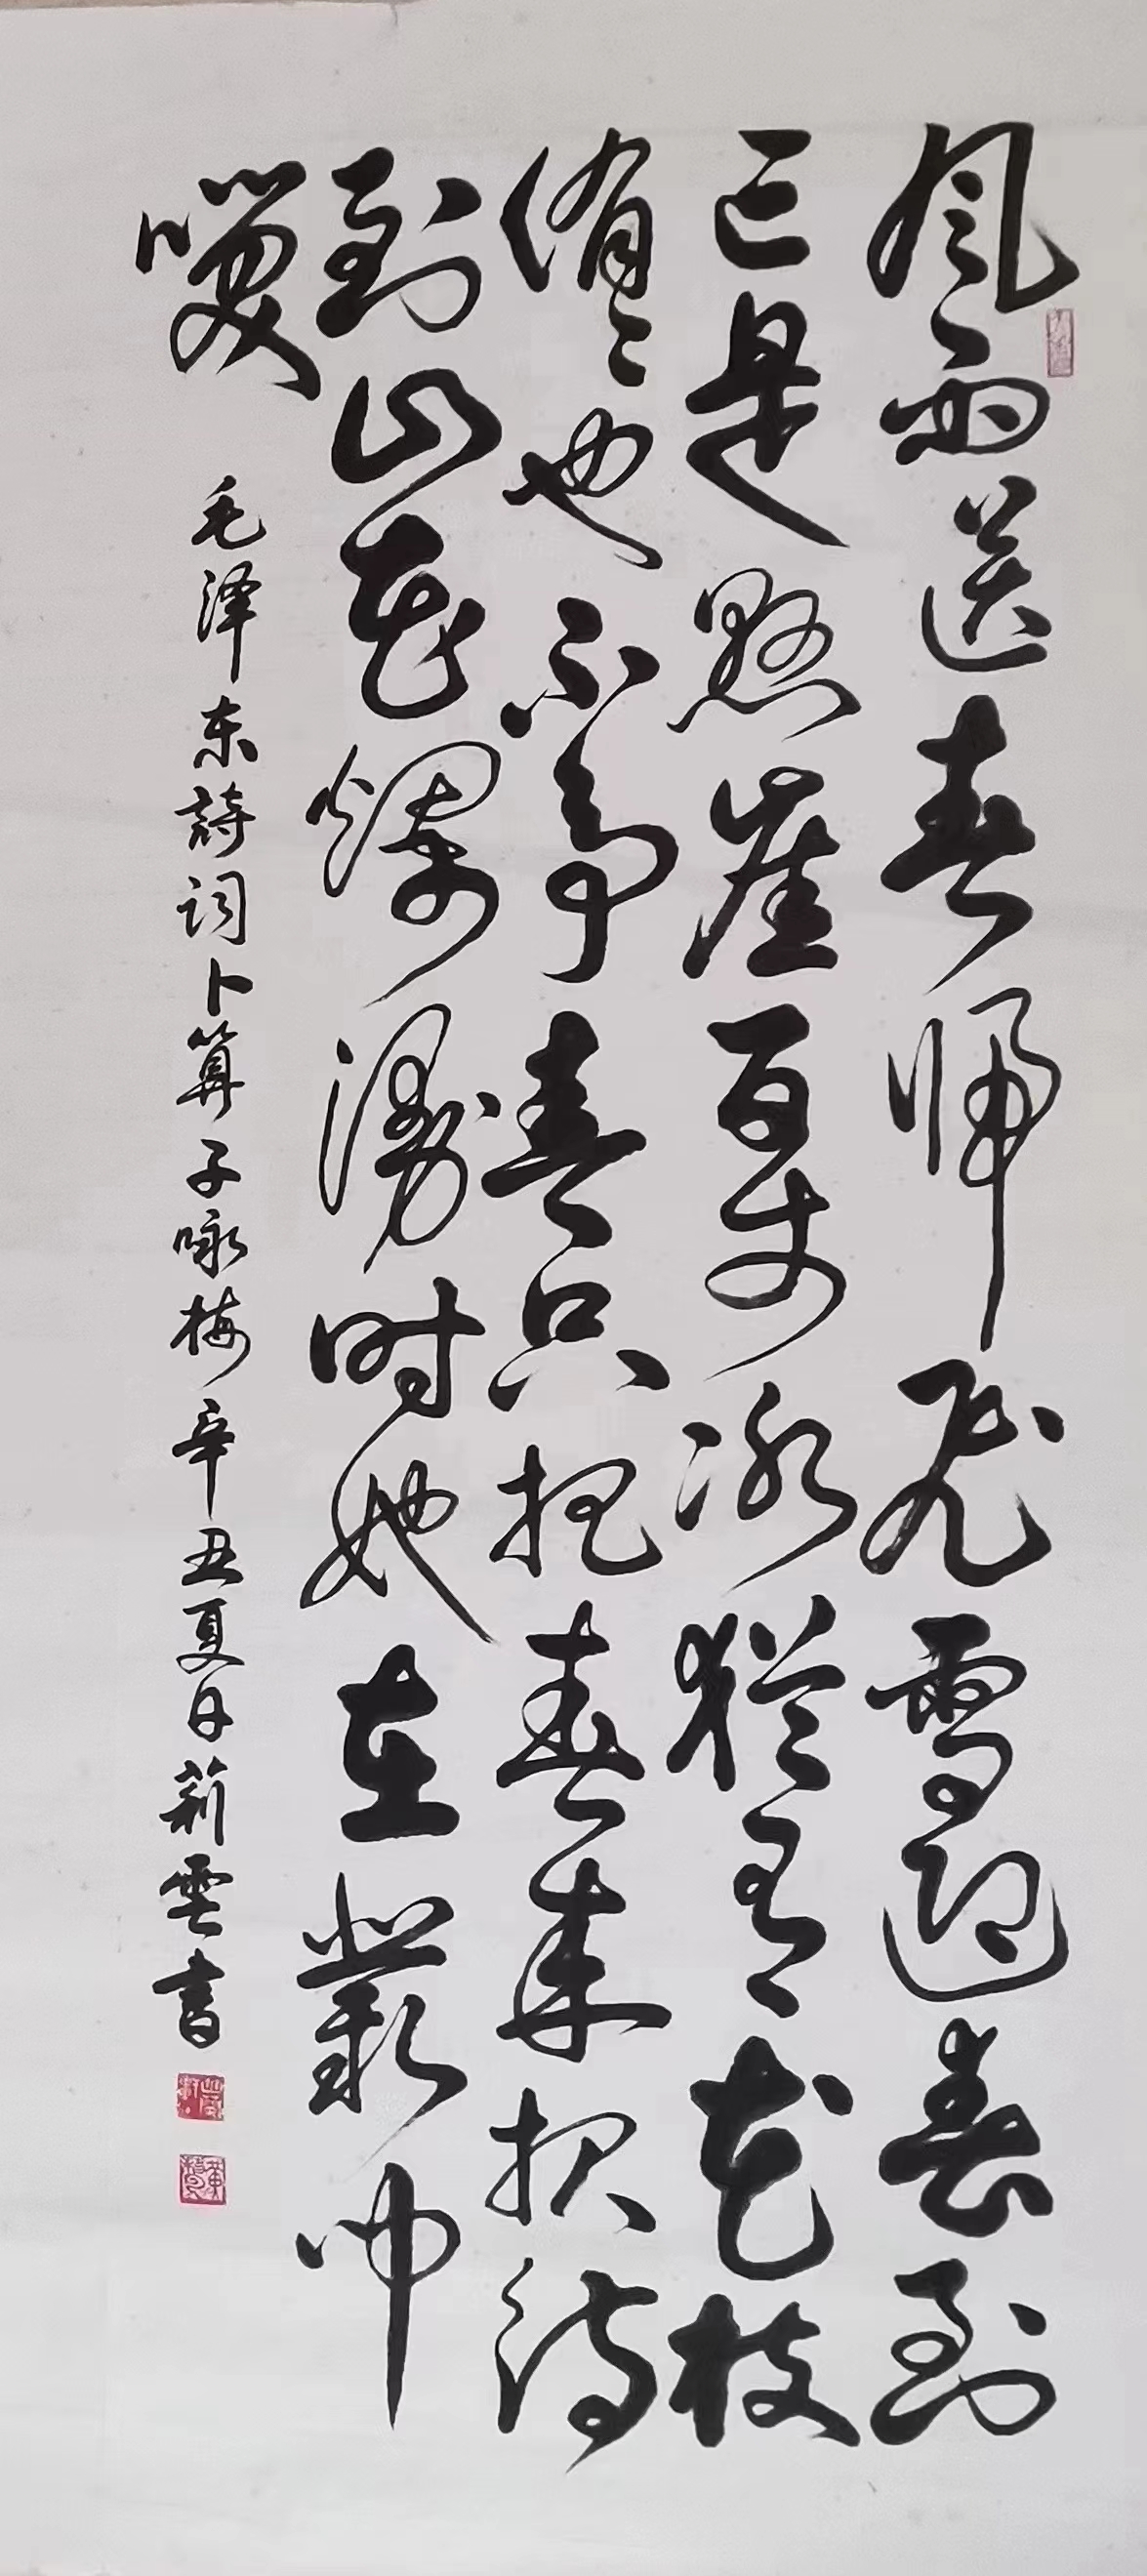 风雨送春归飞雪迎春到
已是懸崖百丈冰猶有花枝
俏〻也不争春只把春来报待
到山花爛漫时她在叢中
笑
毛泽东詩词卜算子咏梅辛丑夏日莉雲書